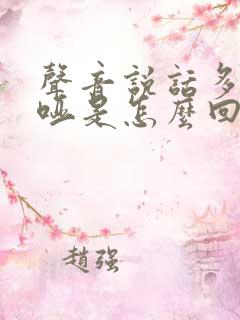 聲音說話多
啞是怎麼回
趙強